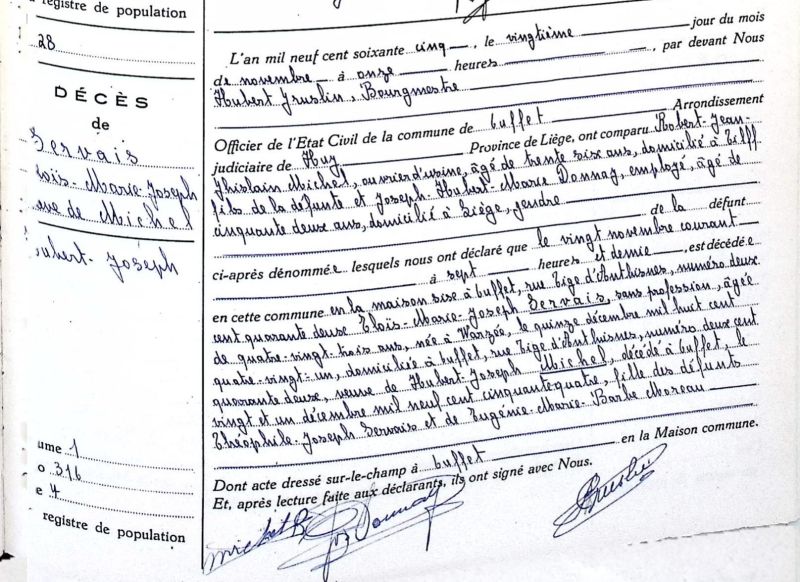 registre de population
28
DÉCÈS
de
Servais
loïs-Marie-Joseph
euve de Michel
ubert-Joseph
ume 1
o 316
e 4
registre de population
L'an mil neuf cent soixante cinq, le vingtième jour du mois
de novembre à onze heures, par devant Nous
Hubert, Bourgmestre
Officier de l'Etat Civil de la commune de Ouffet Arrondissement
judiciaire de Huy Province de Liège, ont comparu Robert-Jean-
Ghislain Michel, ouvrier d'usine, âgé de trente six ans, domicilié à Tilff
fils de la défunte et Joseph-Hubert-Marie Donnay, employé, âgé de
cinquante deux ans, domicilié à Liège, gendre
de la défunt
ci-après dénommée lesquels nous ont déclaré que le vingt novembre courant
à sept heures et demie, est décédée
en cette commune en la maison sise à Ouffet, rue Tige d'Anthisnes, numéro deux
cent quarante deux Eloïs-Marie-Joseph Servais, sans profession, âgée
de quatre-vingt-trois ans, née à Warzée, le quinze décembre mil huit cent
quatre-vingt-un, domiciliée à Ouffet, rue Tige d'Anthisnes, numéro deux cent
quarante deux, veuve de Hubert-Joseph Michel, décédé à Ouffet, le
vingt et un décembre mil neuf cent cinquante quatre, fille des défunts
Théophile-Joseph Servais et de Eugénie-Marie-Barbe Moreau
Dont acte dressé sur-le-champ à Ouffet en la Maison commune.
Et, après lecture faite aux déclarants, ils ont signé avec Nous.
Michel R Donnay